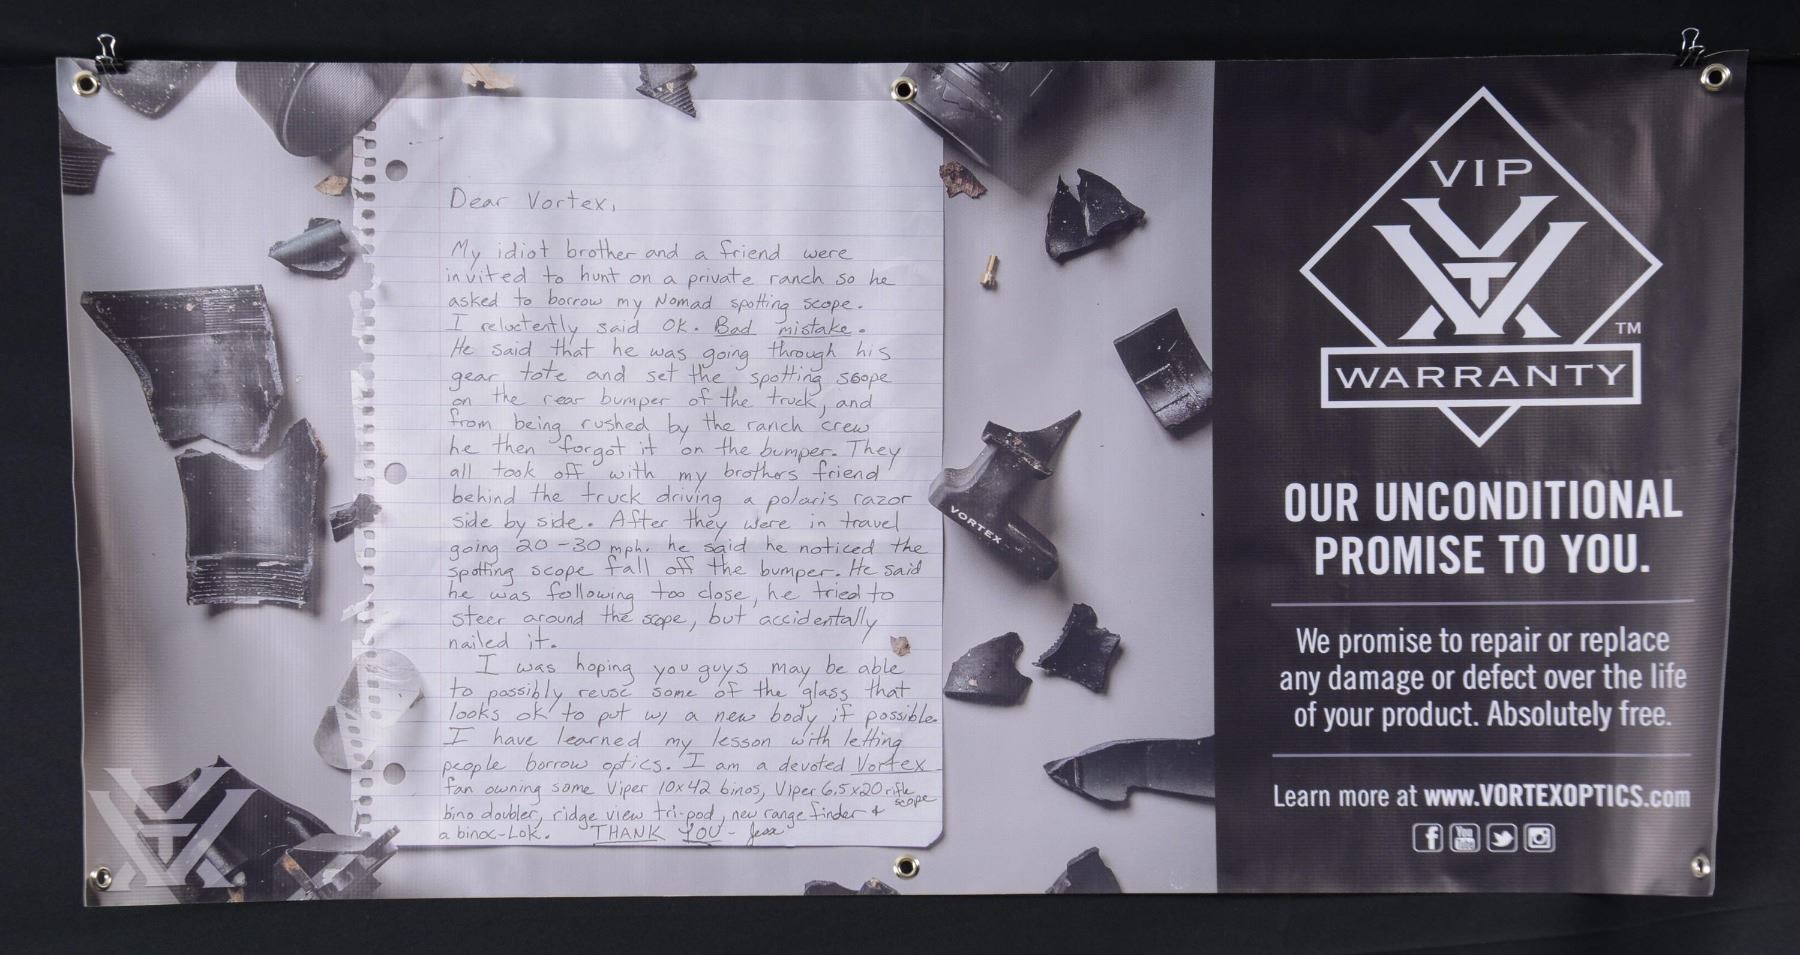 Dear Vortex,
My idiot brother and a friend were
invited to hunt on a private ranch so he
asked to borrow my Nomad spotting scope.
I reluctently said OK. Bad mistake.
He said that he was going through his
gear tote and set the spotting scope
on the rear bumper of the truck, and
from being rushed by the ranch crew
he then forgot it on the bumper. They
all took off with my brothers friend
behind the truck driving a polaris razor
side by side. After they were in travel
going 20-30 mph. he said he noticed the
spotting scope fall off the bumper. He said
he was following too close, he tried to
steer around the scope, but accidentally
nailed it.
I was hoping you guys may be able
to possibly reuse some of the glass that
looks ok to put w/ a new body if possible.
I have learned my lesson with letting
people borrow optics. I am a devoted Vortex
fan owning some Viper 10x42 binos, Viper 6.5x20 rifle scope
bino doubler, ridge view tri-pod, new range finder +
a binoc-Lok. THANK YOU - Jesse
VORTEX
VIP
WARRANTY
TM
OUR UNCONDITIONAL
PROMISE TO YOU.
We promise to repair or replace
any damage or defect over the life
of your product. Absolutely free.
Learn more at www.VORTEXOPTICS.com
f You Tube